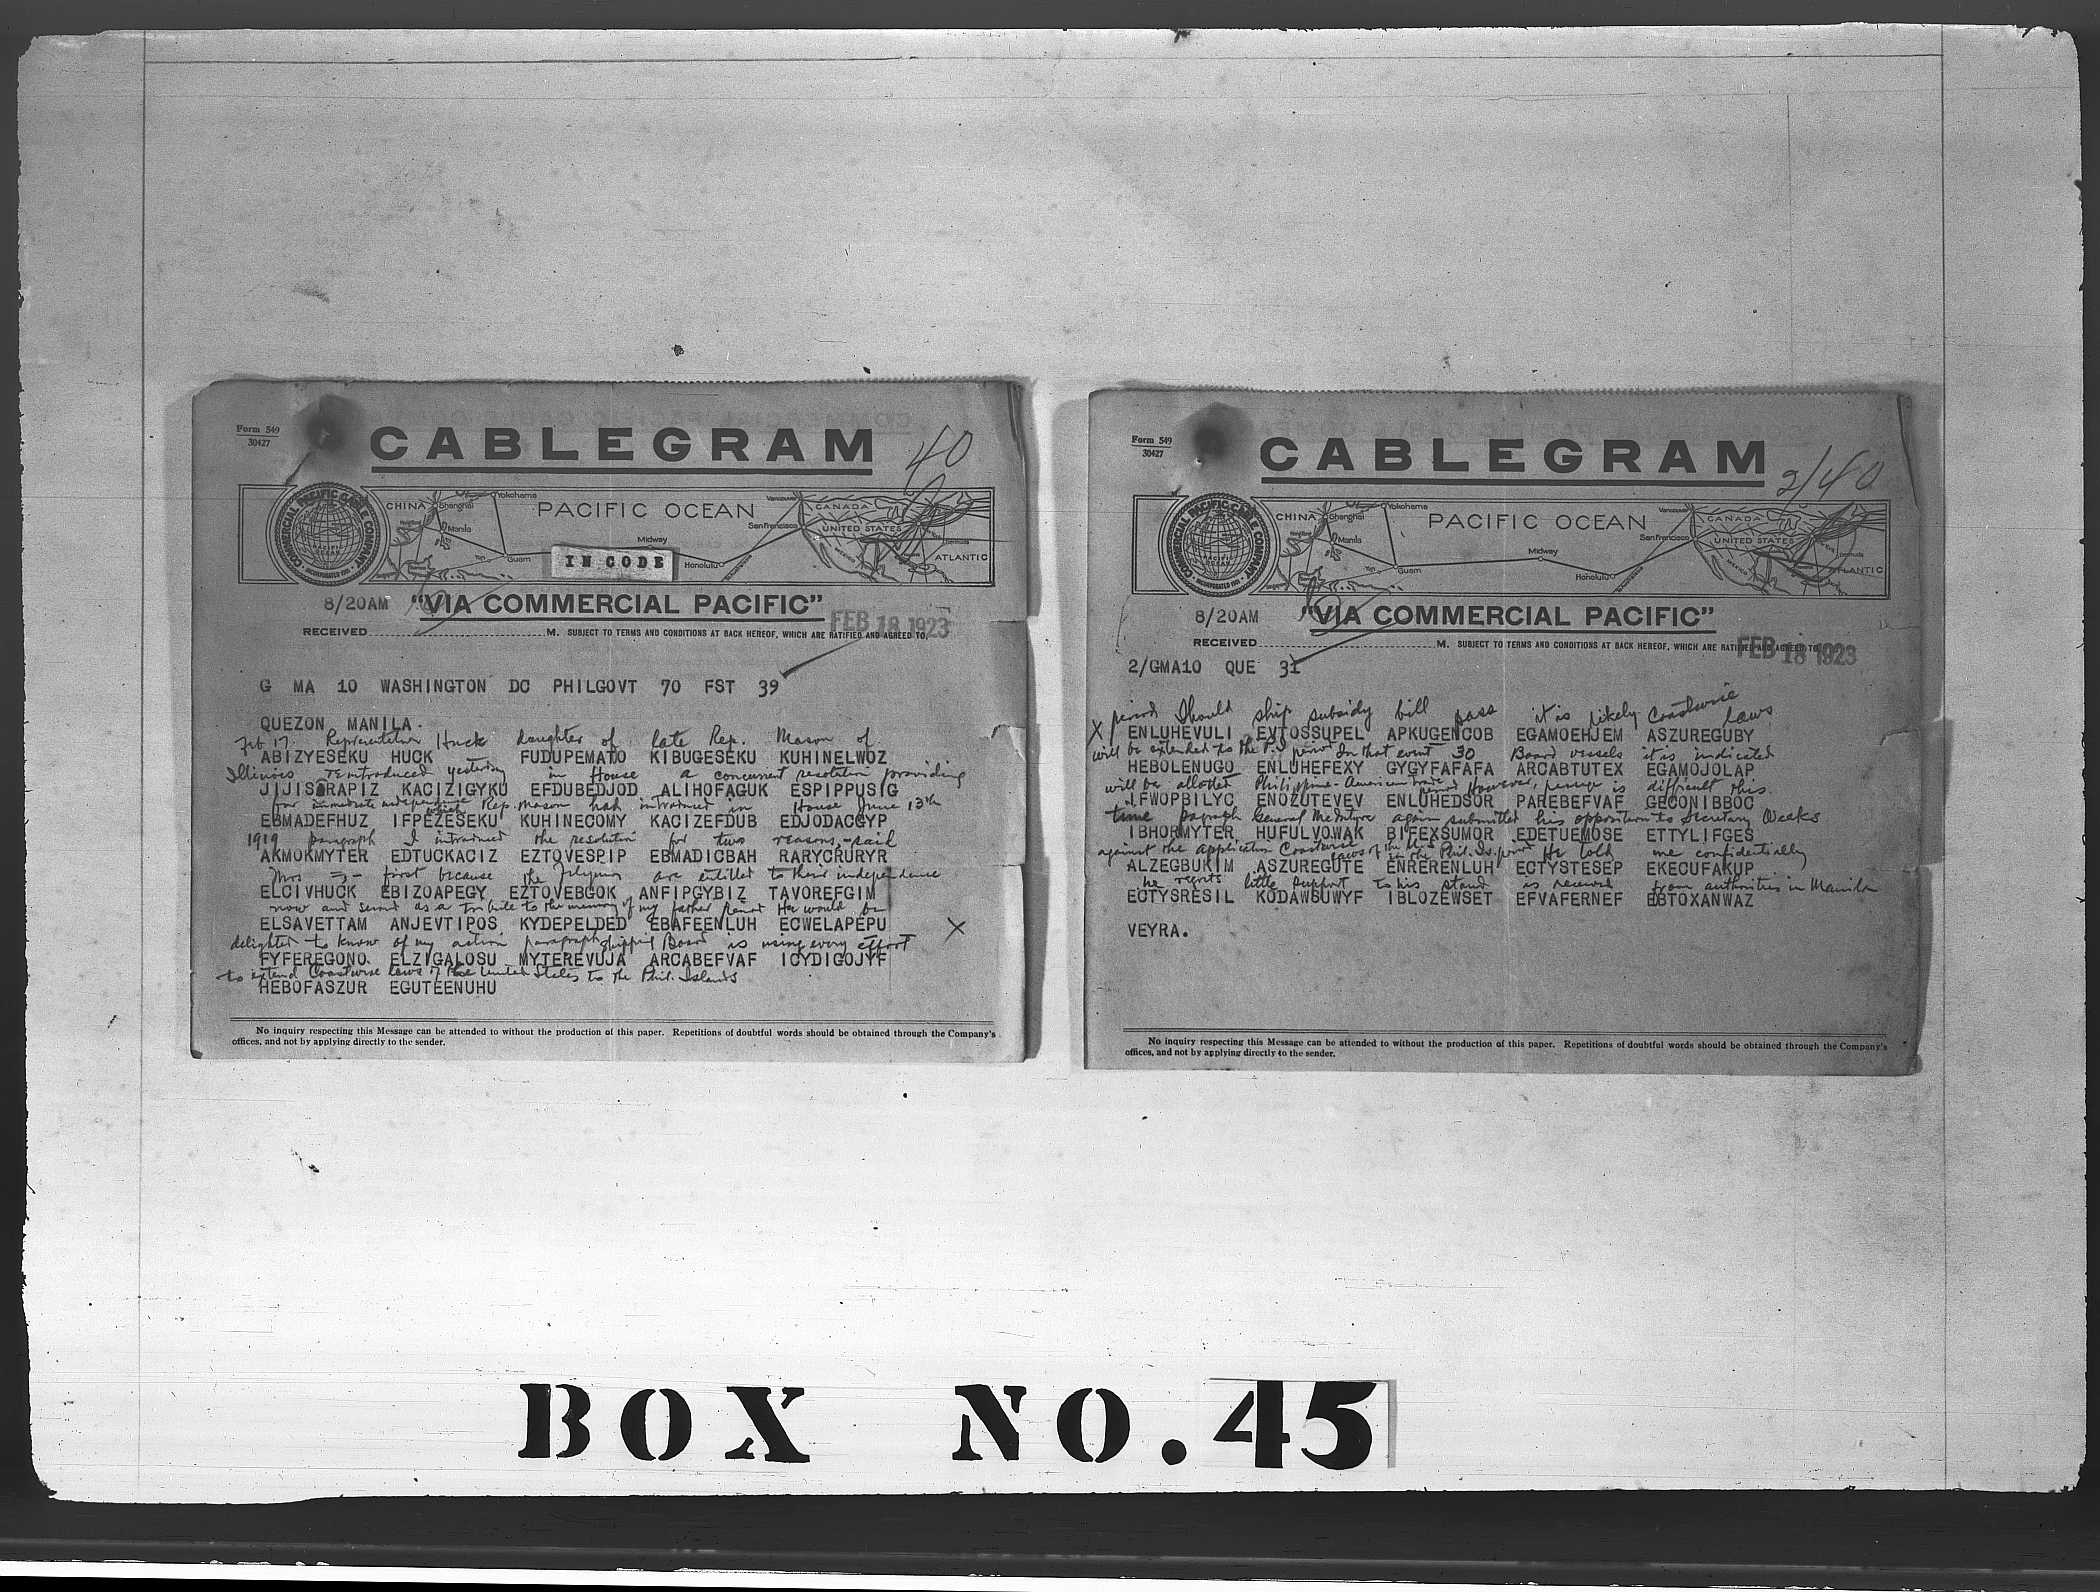 Form 549
30427
CABLEGRAM
40
COMMERCIAL PACIFIC CABLE COMPANY
INCORPORATED 1901
PACIFIC OCEAN
CHINA
Yokohama
Shanghai
Manila
Guam
Midway
Honolulu
San Francisco
Vancouver
CANADA
UNITED STATES
MEXICO
ATLANTIC
IN CODE
8/20AM "VIA COMMERCIAL PACIFIC"
FEB 18 1923
RECEIVED M. SUBJECT TO TERMS AND CONDITIONS AT BACK HEREOF, WHICH ARE RATIFIED AND AGREED TO.
G MA 10 WASHINGTON DC PHILGOVT 70 FST 39
QUEZON MANILA.
Feb 17. Representative Huck daughter of late Rep. Mason of
ABIZYESEKU HUCK FUDUPEMATO KIBUGESEKU KUHINELWOZ
Illinois reintroduced yesterday in House a concurrent resolution providing
JIJISARAPIZ KACIZIGYKU EFDUBEDJOD ALIHOFAGUK ESPIPPUSIG
for immediate independence which Rep. Mason had introduced in House June 13th
EBMADEFHUZ IFPEZESEKU KUHINECOMY KACIZEFDUB EDJODACGYP
1919 paragraph I introduced the resolution for two reasons,- said
AKMOKMYTER EDTUCKACIZ EZTOVESPIP EBMADICBAH RARYCRURYR
Mrs - first because the Filipinos are entitled to their independence
ELCIVHUCK EBIZOAPEGY EZTOVEBGOK ANFIPGYBIZ TAVOREFGIM
now and second as a tribute to the memory of my father period He would be
ELSAVETTAM ANJEVTIPOS KYDEPELDED EBAFEENLUH ECWELAPEPU
delighted to know of my action paragraph Shipping Board is using every effort
FYFEREGONO ELZIGALOSU MYTEREVUJA ARCABEFVAF ICYDIGOJYF
to extend Coastwise laws of the United States to the Phil. Islands
HEBOFASZUR EGUTEENUHU
No inquiry respecting this Message can be attended to without the production of this paper. Repetitions of doubtful words should be obtained through the Company's
offices, and not by applying directly to the sender.
Form 549
30427
CABLEGRAM
2/40
COMMERCIAL PACIFIC CABLE COMPANY
INCORPORATED 1901
PACIFIC OCEAN
CHINA
Yokohama
Shanghai
Manila
Guam
Midway
Honolulu
San Francisco
Vancouver
CANADA
UNITED STATES
MEXICO
ATLANTIC
8/20AM "VIA COMMERCIAL PACIFIC"
RECEIVED M. SUBJECT TO TERMS AND CONDITIONS AT BACK HEREOF, WHICH ARE RATIFIED AND AGREED TO
FEB 18 1923
2/GMA10 QUE 31
X period Should ship subsidy bill pass it is likely Coastwise laws
ENLUHEVULI EVTOSSUPEL APKUGENCOB EGAMOEHJEM ASZUREGUBY
will be extended to the P.I period In that event 30 Board vessels it is indicated
HEBOLENUGO ENLUHEFEXY GYGYFAFAFA ARCABTUTEX EGAMOJOLAP
will be allotted Philippine-American trade period However, passage is difficult this
IFWOPBILYC ENOZUTEVEV ENLUHEDSOR PAREBEFVAF GECONIBBOC
time paragraph General McIntyre again submitted his opposition to Secretary Weeks
IBHORMYTER HUFULVOWAK BIFEXSUMOR EDETUEMOSE ETTYLIFGES
against the application Coastwise laws of the U.S in the Phil. Is. period He told me confidentially
ALZEGBUKIM ASZUREGUTE ENRERENLUH ECTYSTESEP EKECUFAKUP
he regrets little support to his stand is received from authorities in Manila
ECTYSRESIL KODAWSUWYF IBLOZEWSET EFVAFERNEF EBTOXANWAZ
VEYRA.
No inquiry respecting this Message can be attended to without the production of this paper. Repetitions of doubtful words should be obtained through the Company's
offices, and not by applying directly to the sender.
BOX NO. 45